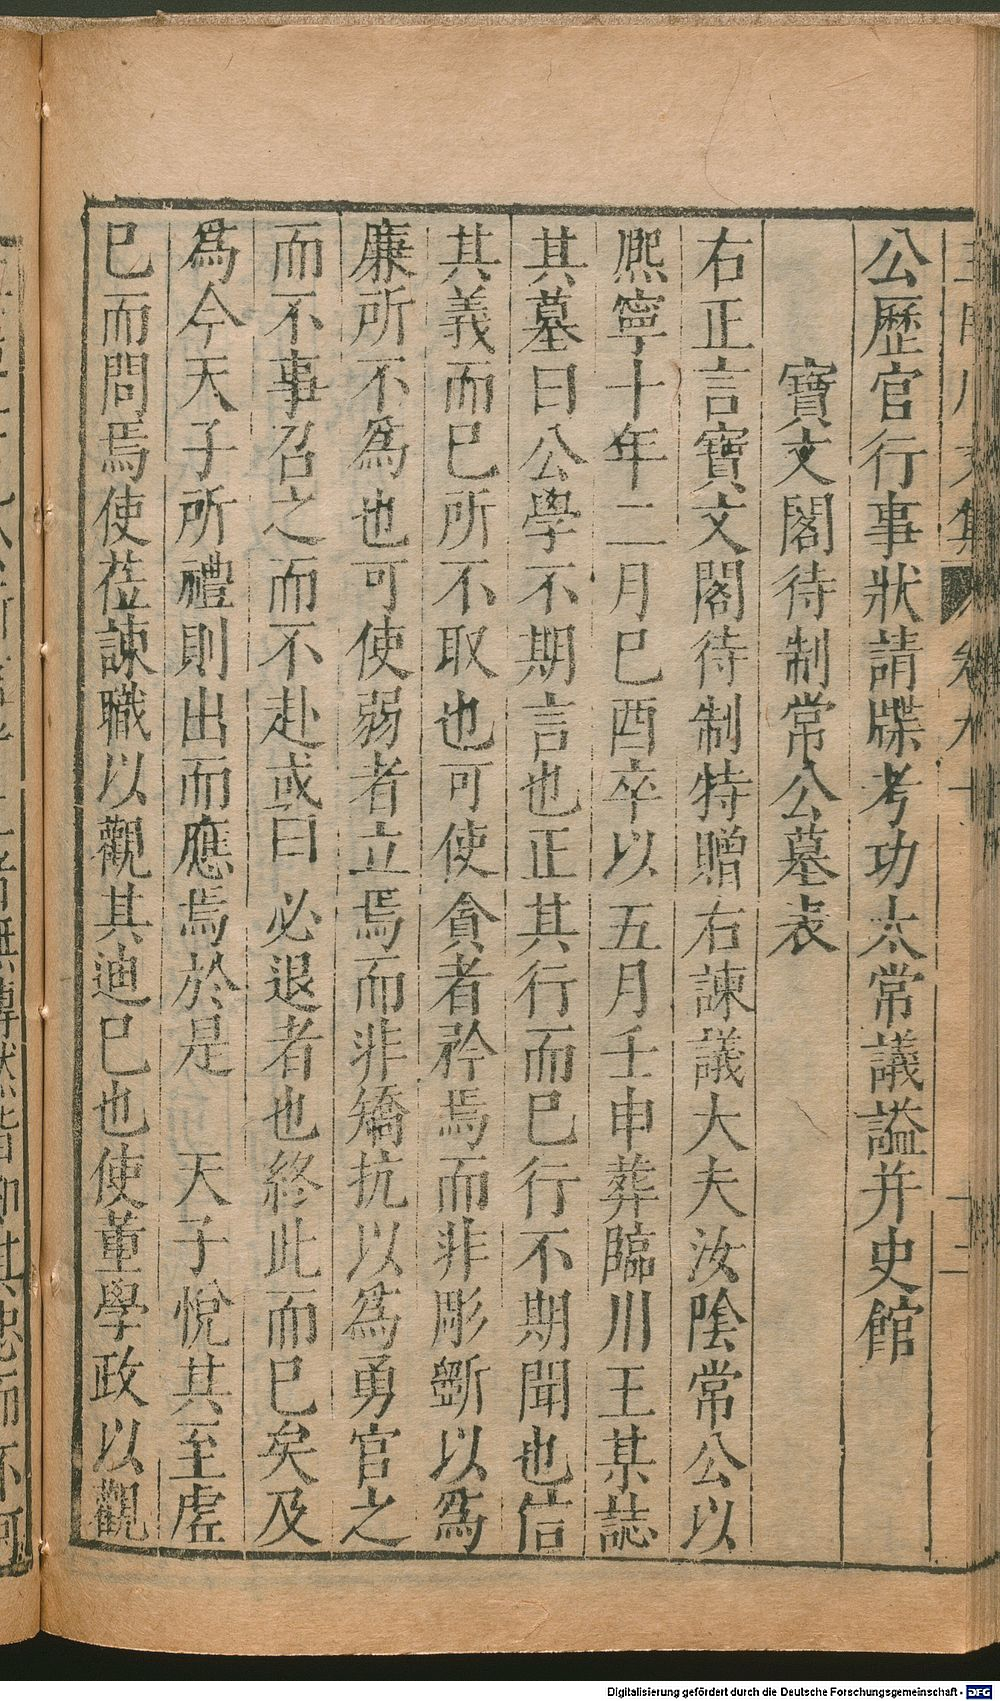 公歷官行事狀請牒考功太常議謚并史館
寶文閣待制常公墓表
右正言寶文閣待制特贈右諫議大夫汝陰常公以
熈寧十年二月已酉卒以五月壬申葬臨川王某誌
其墓曰公學不期言也正其行而已行不期聞也信
其義而已所不取也可使貪者矜焉而非彫斵以爲
廉所不爲也可使弱者立焉而非矯抗以爲勇官之
而不事召之而不赴或曰必退者也終此而已矣及
爲今天子所禮則出而應焉於是 天子悅其至虛
已而問焉使莅諫職以觀其迪已也使董學政以觀
Digitalisierung gefördert durch die Deutsche Forschungsgemeinschaft - DFG